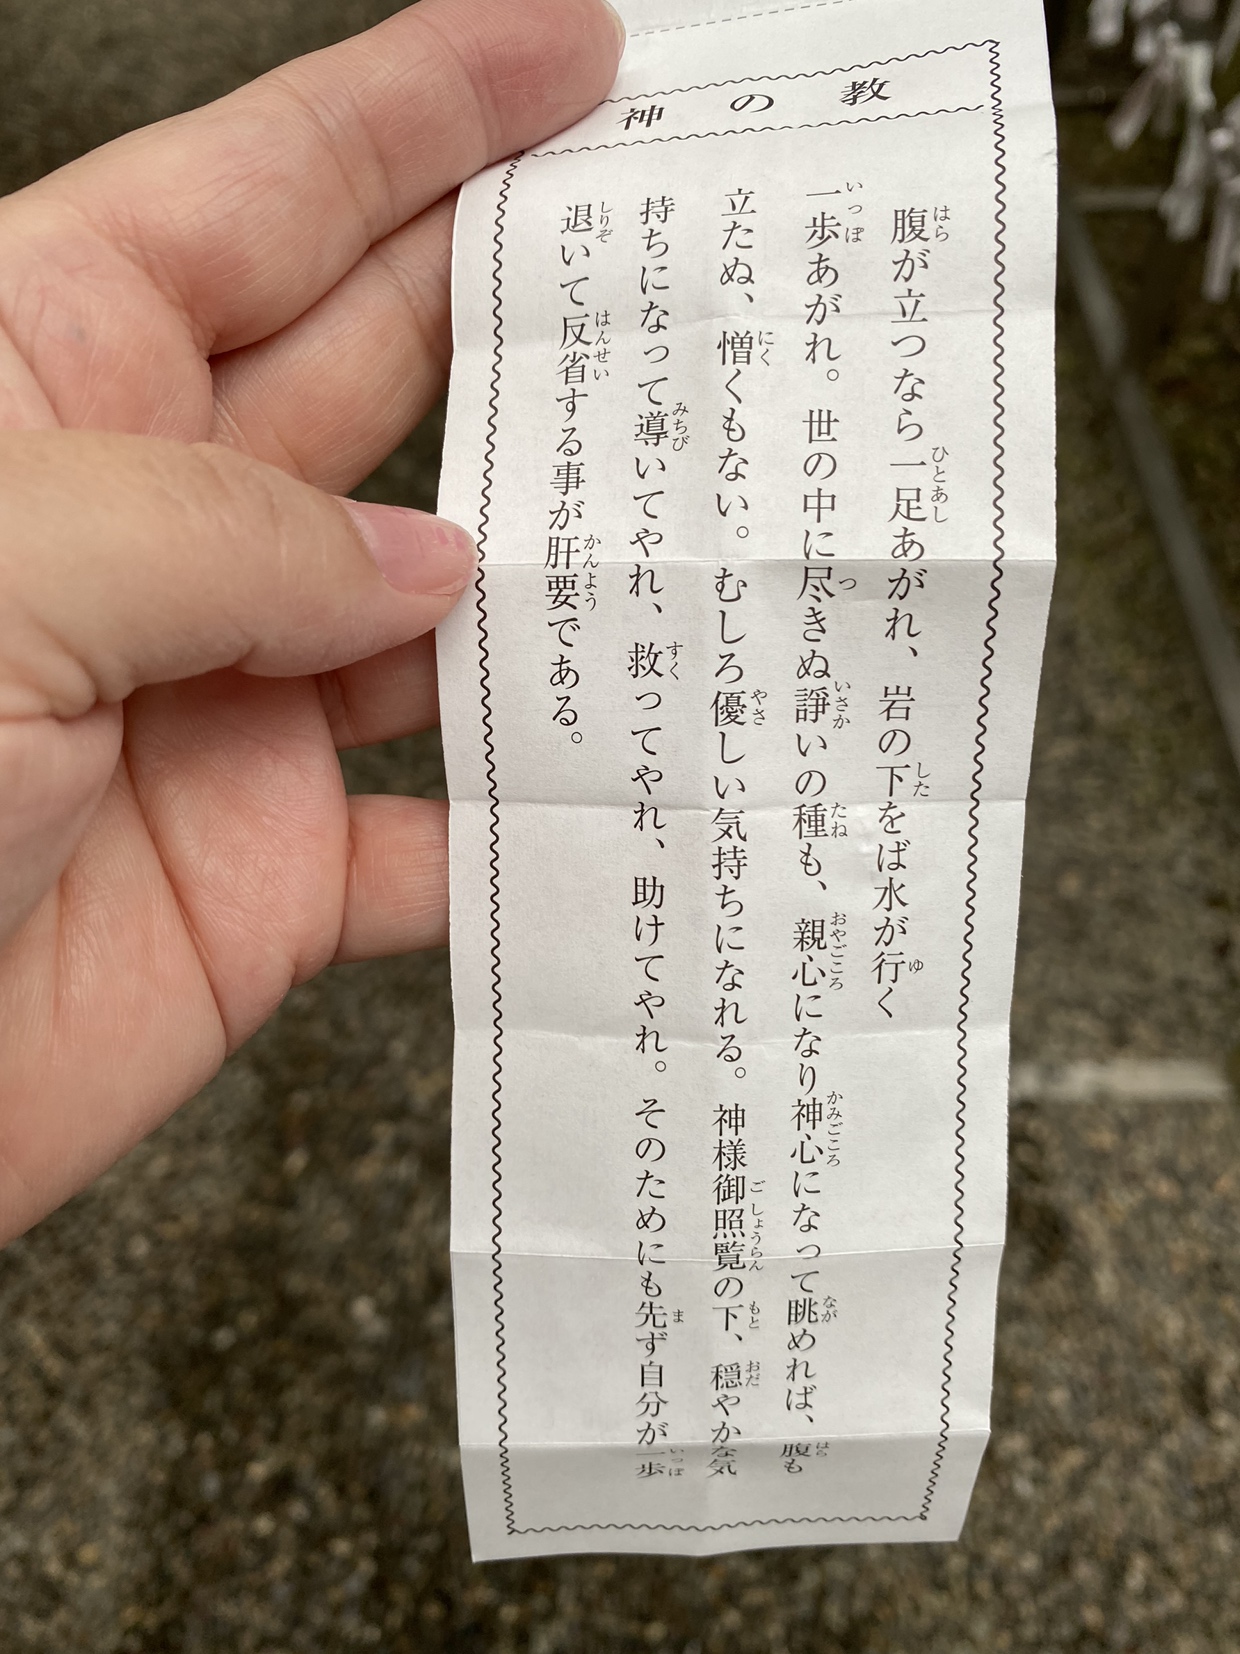 神の教
腹が立つなら一足あがれ、岩の下をば水が行く
一歩あがれ。世の中に尽きぬ諍いの種も、親心になり神心になって眺めれば、腹も
立たぬ、憎くもない。むしろ優しい気持ちになれる。神様御照覧の下、穏やかな気
持ちになって導いてやれ、救ってやれ、助けてやれ。そのためにも先ず自分が一歩
退いて反省する事が肝要である。